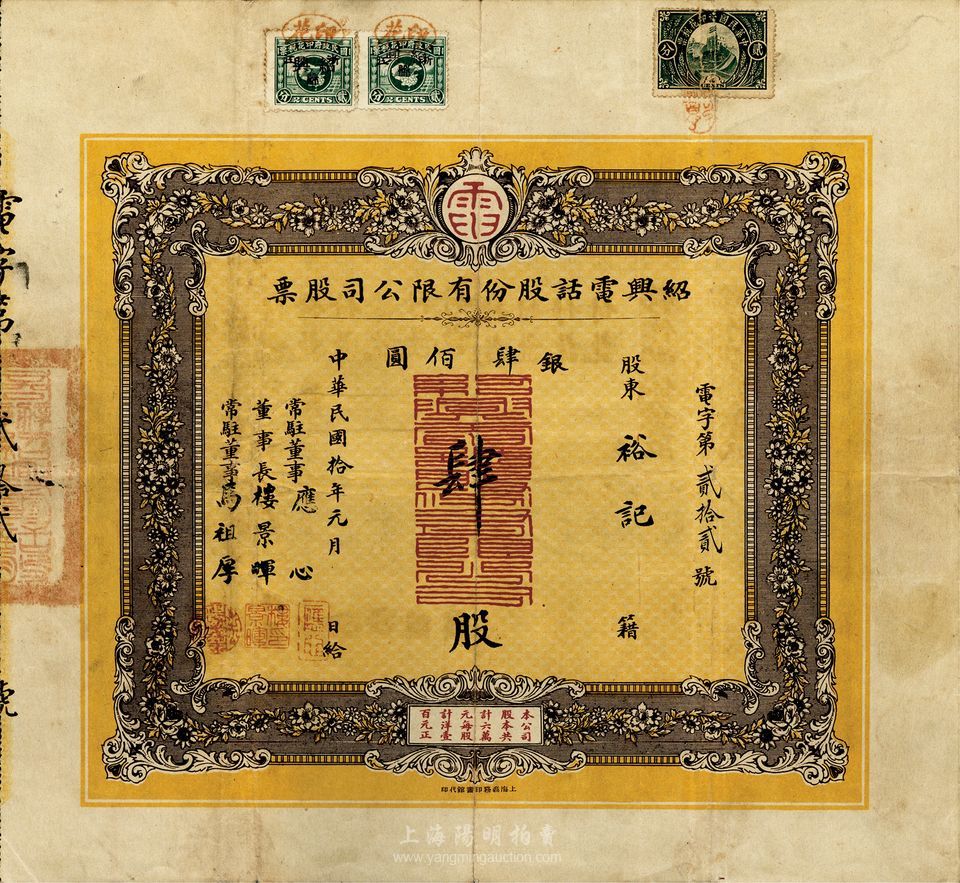 紹興電話股份有限公司股票
電字第貳拾貳號
股東 裕記 籍
銀肆佰圓
肆
股
中華民國拾年元月 日給
常駐董事應心
董事長樓景暉
常駐董事馬祖厚
本公司
股本共
計六萬
元每股
計洋壹
百元正
上海商務印書館代印
電字第 貳拾貳 號
印花
印花
2 CENTS
2 CENTS
上海陽明拍賣
www.yangmingauction.com